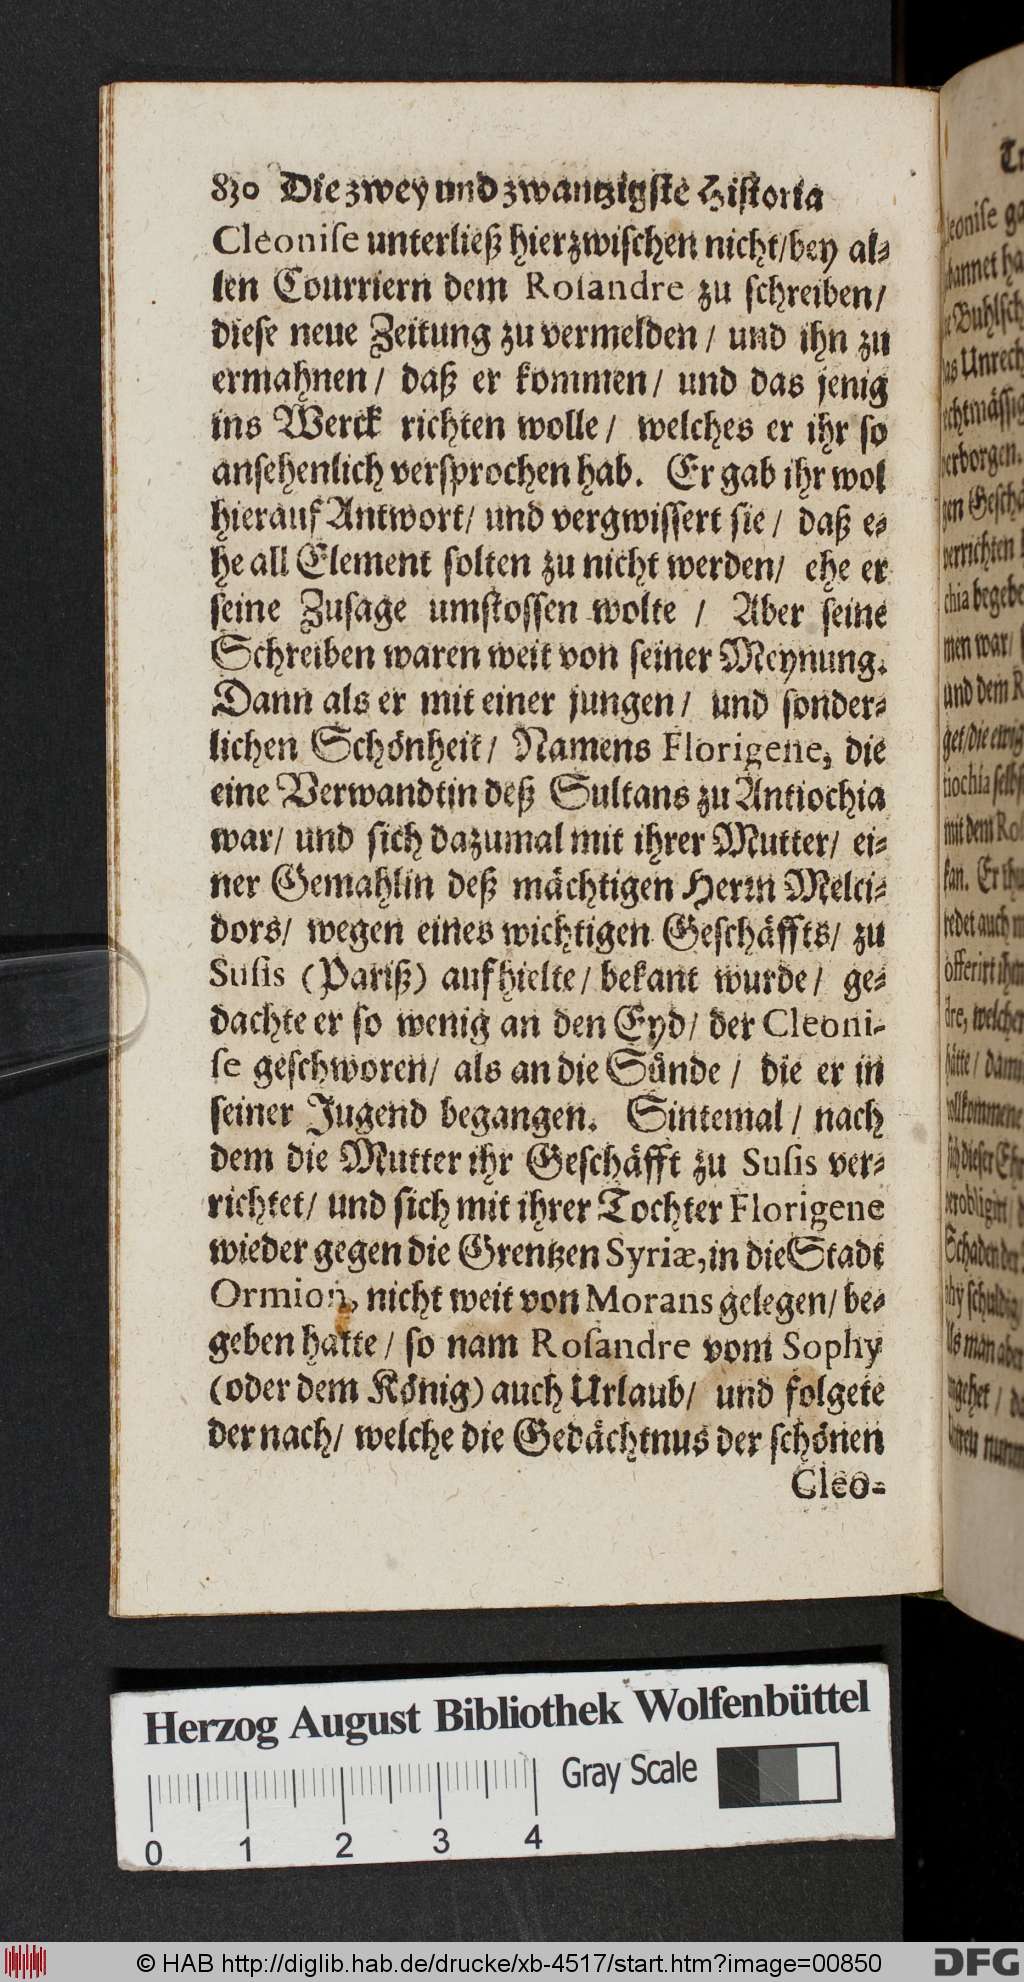 830 Die zwey und zwantzigste Historia
Cleonise unterließ hierzwischen nicht/bey al-
len Courriern dem Rosandre zu schreiben/
diese neue Zeitung zu vermelden / und ihn zu
ermahnen / daß er kommen / und das jenig
ins Werck richten wolle / welches er ihr so
ansehenlich versprochen hab. Er gab ihr wol
hierauf Antwort/ und vergwissert sie / daß e-
he all Element solten zu nicht werden/ ehe er
seine Zusage umstossen wolte / Aber seine
Schreiben waren weit von seiner Meynung.
Dann als er mit einer jungen / und sonder-
lichen Schönheit / Namens Florigene, die
eine Verwandtin deß Sultans zu Antiochia
war/ und sich dazumal mit ihrer Mutter/ ei-
ner Gemahlin deß mächtigen Herrn Melci-
dors/ wegen eines wichtigen Geschäffts/ zu
Susis (Pariß) aufhielte / bekant wurde / ge-
dachte er so wenig an den Eyd/ der Cleoni-
se geschworen/ als an die Sünde / die er in
seiner Jugend begangen. Sintemal / nach
dem die Mutter ihr Geschäfft zu Susis ver-
richtet/ und sich mit ihrer Tochter Florigene
wieder gegen die Grentzen Syriæ, in die Stadt
Ormion, nicht weit von Morans gelegen/ be-
geben hatte / so nam Rosandre vom Sophy
(oder dem König) auch Urlaub/ und folgete
der nach/ welche die Gedächtnus der schönen
Cleo-
Herzog August Bibliothek Wolfenbüttel
Gray Scale
0 1 2 3 4
© HAB http://diglib.hab.de/drucke/xb-4517/start.htm?image=00850
DFG